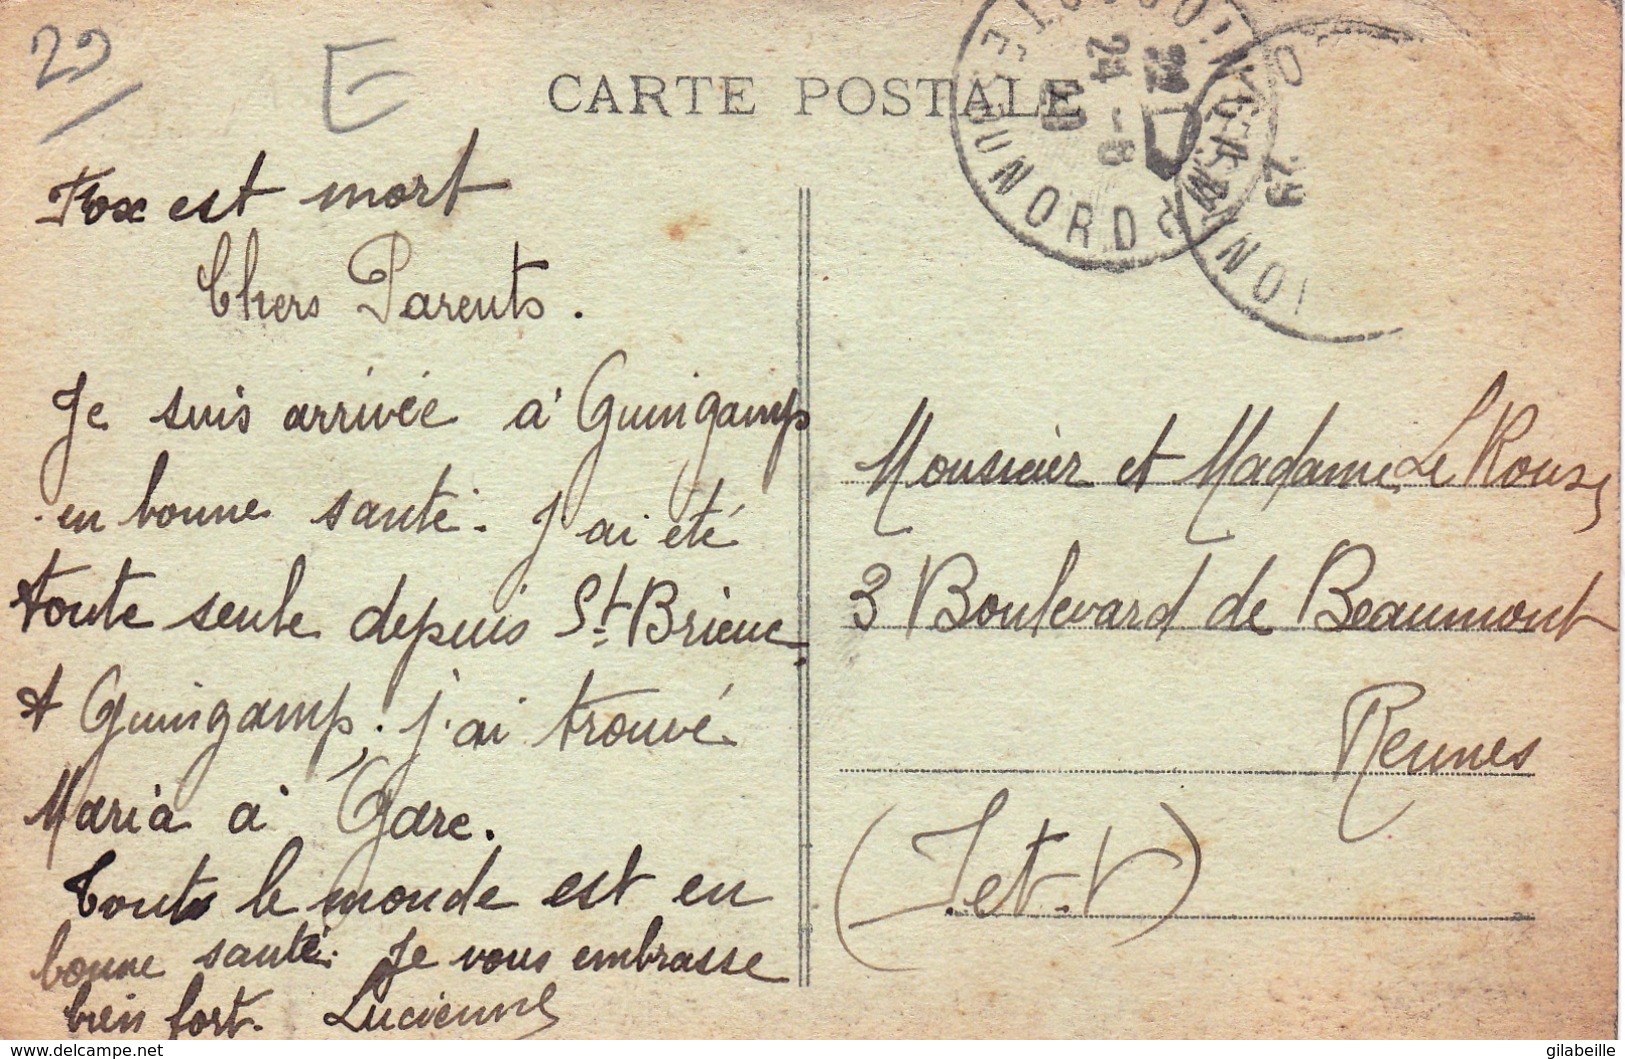 29
E
CARTE POSTALE
Fox est mort
Chers Parents.
Je suis arrivée à Guingamp
en bonne santé. J'ai été
toute seule depuis St. Brieuc.
A Guingamp, j'ai trouvé
Maria à Gare.
Tout le monde est en
bonne santé. Je vous embrasse
bien fort. Lucienne
22
24 - 8
29
NORD
Monsieur et Madame Le Roux
3 Boulevard de Beaumont
Rennes
(I.et.V)
www.delcampe.net
gilabeille